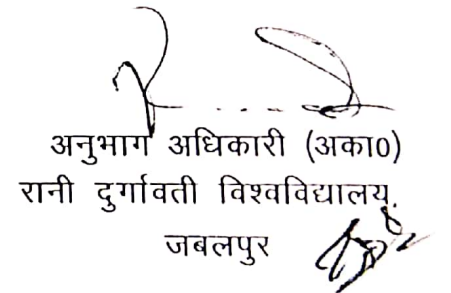 अनुभाग अधिकारी (अका0)
रानी दुर्गावती विश्वविद्यालय.
जबलपुर